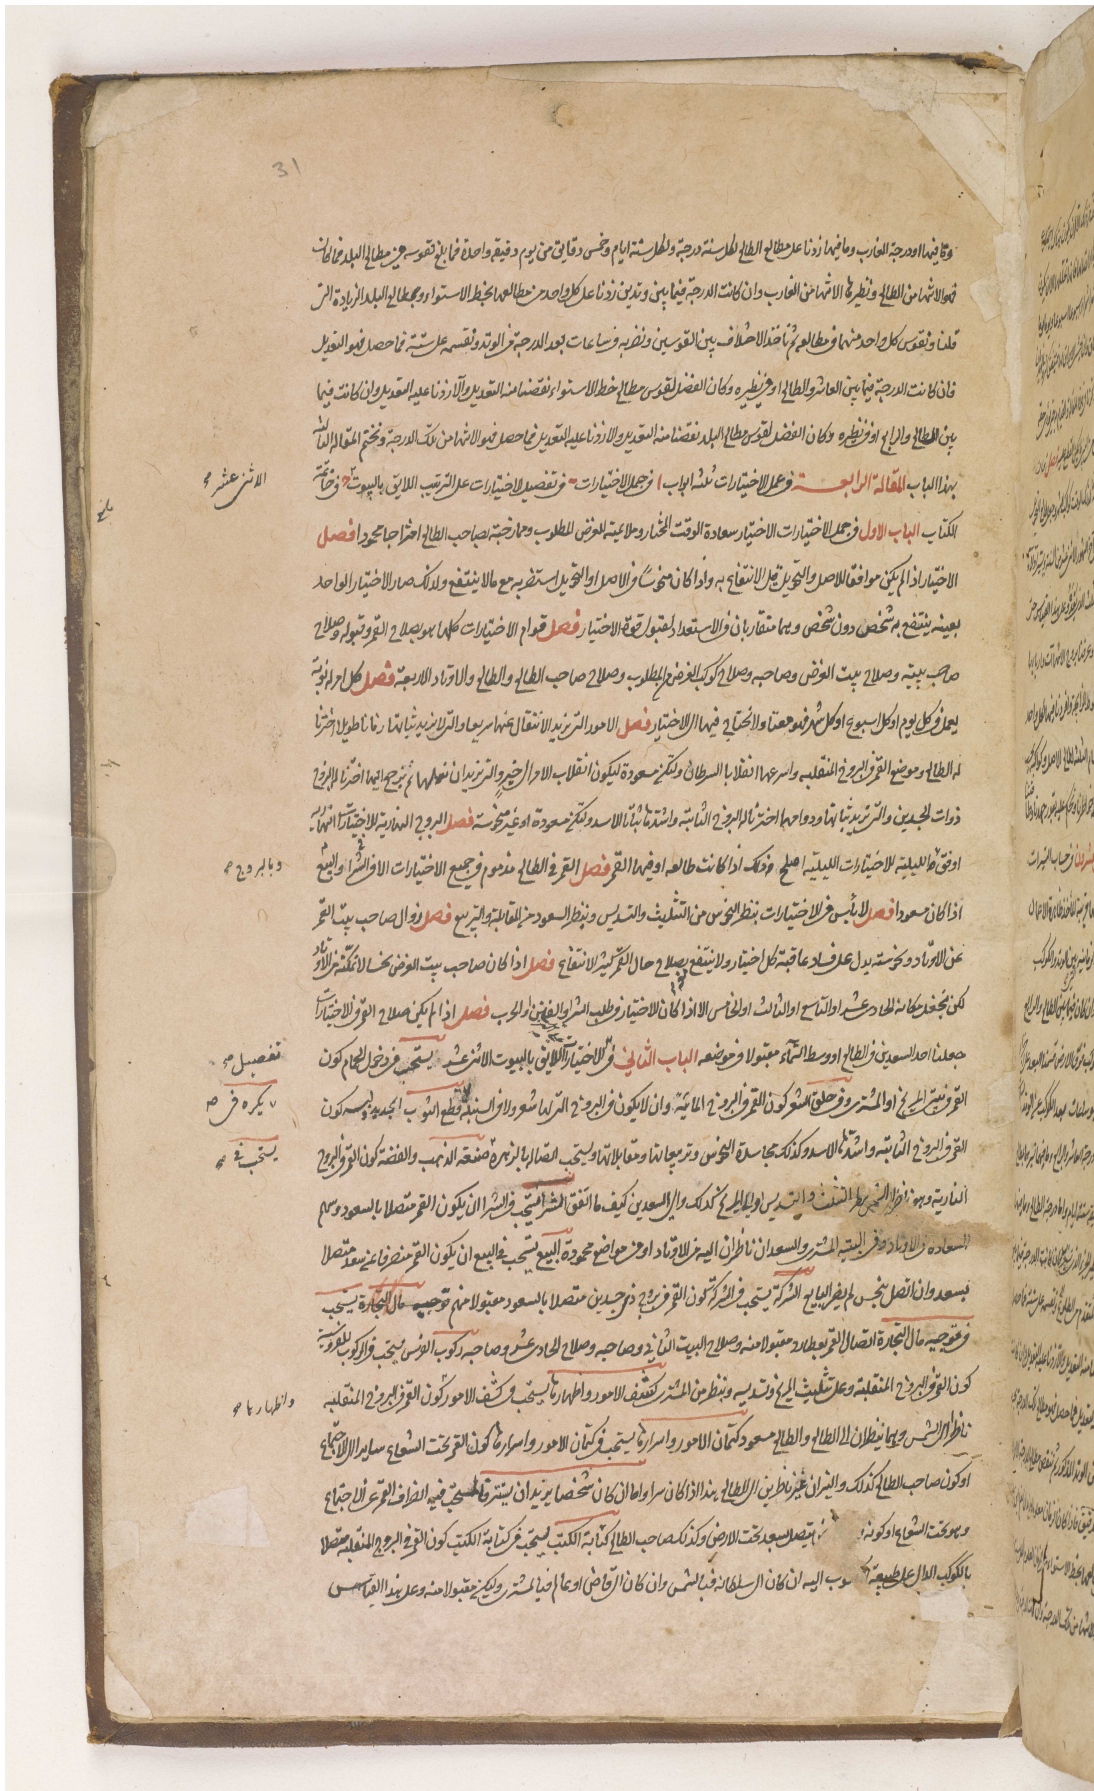 31
وما فيها او درجة الغارب وما فيها زدنا على مطالع الطالع لكل سنة درجة ولكل ستة ايام وخمس دقايق من يوم دقيقة واحدة فما بلغ نقوسه في مطالع البلد فما كان
فهو الانتهاء من الطالع ونظيرها الانتهاء من الغارب وان كانت الدرجة فيما بين وتدين زدنا على كل واحد من مطالعها بخط الاستواء ومطالع البلد الزيادة التى
قلنا ونقوس كل واحد منهما فى مطالعه ثم ناخذ الاختلاف بين القوسين ونضربه فى ساعات بعد الدرجة فى الوتد ونقسمه على ستة فما حصل فهو التعديل
فان كانت الدرجة فيما بين العاشر والطالع او فى نظيره وكان الفضل لقوس مطالع خط الاستواء نقصنا منه التعديل والا زدنا عليه التعديل وان كانت فيما
بين الطالع والرابع او فى نظيره وكان الفضل لقوس مطالع البلد نقصنا منه التعديل والا زدنا عليه التعديل فما حصل فهو الانتهاء من تلك الدرجة ونختم المقالة الثالثة
بهذا الباب المقالة الرابعة فى عمل الاختيارات ثلثه ابواب ا فى جمل الاختيارات ب فى تفصيل الاختيارات على الترتيب اللايق بالبيوت ج فى خاتمة
الاثنى عشر صح
الكتاب الباب الاول فى جمل الاختيارات الاختيار سعادة الوقت المختار وملائمته للغرض المطلوب وممازجته لصاحب الطالع امتزاجا محمودا فصل
الاختيار اذا لم يكن موافقا للاصل والتحويل قل الانتفاع به واذا كان منحوسا فى الاصل او التحويل استضر به مع ما لا ينتفع ولذلك صار الاختيار الواحد
بعينه ينتفع به شخص دون شخص وهما متقاربان فى الاستعداد لقبول قوة الاختيار فصل قوام الاختيارات كلها هو بصلاح القمر وقبوله وصلاح
صاحب بيته وصلاح بيت الغرض وصاحبه وصلاح كوكب الغرض المطلوب وصلاح صاحب الطالع والطالع والاوتاد الاربعة فصل كل امر له نوبة
يعمل فى كل يوم او كل اسبوع او كل شهر فهو معتاد ولا نحتاج فيها الى الاختيار فصل الامور التى نريد الانتقال عنها سريعا والتى لا نريد ثباتها زمانا طويلا اخترنا
له الطالع وموضع القمر فى البروج المنقلبه واسرعها انقلابا السرطان ولتكن مسعودة ليكون انقلاب الامر الى خير والتى نريد ان نعملها ثم نرجع اليها اخترنا لها البروج
ذوات الجسدين والتى نريد ثباتها ودوامها اخترنا له البروج الثابتة واشدها ثباتا الاسد ولتكن مسعودة او غير منحوسة فصل البروج النهارية للاختيارات النهارية
اوفق والليلية للاختيارات الليلية اصلح وذلك اذا كانت طالعه او فيها القمر فصل القمر فى الطالع مذموم فى جميع الاختيارات الا فى الشراء والبيع
وبالبروج صح
اذا كان مسعودا فصل لا باس فى الاختيارات بنظر النحوس من التثليث والتسديس وبنظر السعود من المقابلة والتربيع فصل زوال صاحب بيت القمر
عن الاوتاد ونحوسته يدل على فساد عاقبة كل اختيار ولا ينتفع بصلاح حال القمر كثير الانتفاع فصل اذا كان صاحب بيت الغرض نحسا لا نمكنه من الاوتاد
لكن نجعل مكانه الحادى عشر او التاسع او الثالث او الخامس الا اذا كان الاختيار فى طلب الشر والفتن والحرب فصل اذا لم يكن صلاح القمر فى الاختيارات
جعلنا احد السعدين فى الطالع او وسط السماء مقبولا فى موضعه الباب الثانى فى الاختيارات اللايق بالبيوت الاثنى عشر يستحب فى دخول الحمام كون
تفصيل صح
القمر فى بيتى المريخ او المشترى وفى حلق الشعر كون القمر فى البروج المائية وان لا يكون فى البروج التى لها شعر ولا فى السنبلة قطع الثوب الجديد ولبسه كون
يكره فى صح
القمر فى البروج الثابتة واشدها الاسد وكذلك مجاسدة النحوس وتربيعاتها ومقابلاتها ويستحب اتصاله بالزهرة صنعة الذهب والفضة كون القمر فى البروج
يستحب فى صح
النارية وهو ناظر الى الشمس نظر التثليث والتسديس او الى المريخ كذلك والى السعدين كيف ما اتفق الشراء يستحب فى الشراء ان يكون القمر متصلا بالسعود وسهم
السعاده فى الاوتاد وفى البيتيه المشترى والسعدان ناظران اليه من الاوتاد او من مواضع محمودة البيع يستحب فى البيع ان يكون القمر منصرفا عن سعد متصلا
بسعد وان اتصل بنحس لم يضر البايع الشركة يستحب فى الشركة كون القمر فى بروج ذى جسدين متصلا بالسعود مقبولا منهم توجيه مال التجارة يستحب
فى توجيه مال التجارة اتصال القمر بعطارد مقبولا منه وصلاح البيت الثانى وصاحبه وصلاح الحادى عشر وصاحبه ركوب الفرس يستحب فى الركوب للفروسية
كون القمر فى البروج المنقلبة وعلى تثليث المريخ وتسديسه وبنظر من المشترى كشف الامور واظهارها يستحب فى كشف الامور كون القمر فى البروج المنقلبه
واظهارها صح
ناظرا الى الشمس وهما ينظران الى الطالع والطالع مسعود كتمان الامور واسرارها يستحب فى كتمان الامور واسرارها كون القمر تحت الشعاع سايرا الى الاجتماع
او كون صاحب الطالع كذلك والنيران غير ناظرين الى الطالع هذا اذا كان سرا واما ان كان شخصا يريد ان يستتر فيستحب فيه انصراف القمر عن الاجتماع
وهو تحت الشعاع او كونه متصل بسعد تحت الارض وكذلك صاحب الطالع كتابة الكتب يستحب فى كتابة الكتب كون القمر فى البروج المنقلبة متصلا
بالكوكب الدال على طبيعة المكتوب اليه ان كان الى سلطان فبالشمس وان كان الى قاض او عالم فبالمشترى وليكن مقبولا منه وعلى هذا القياس